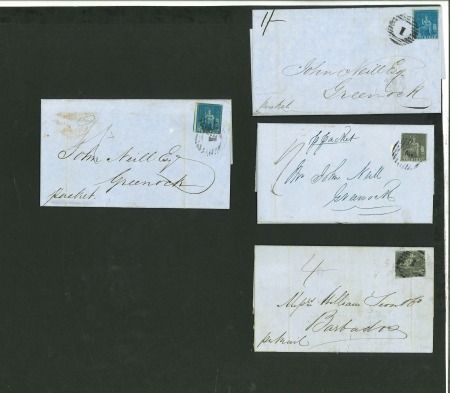 John Neill Esq
Greenock
packet
1/-
1
John Neill Esq
Greenock
packet
p packet
Mr John Neill
Greenock
4
William
Barbados
per mail